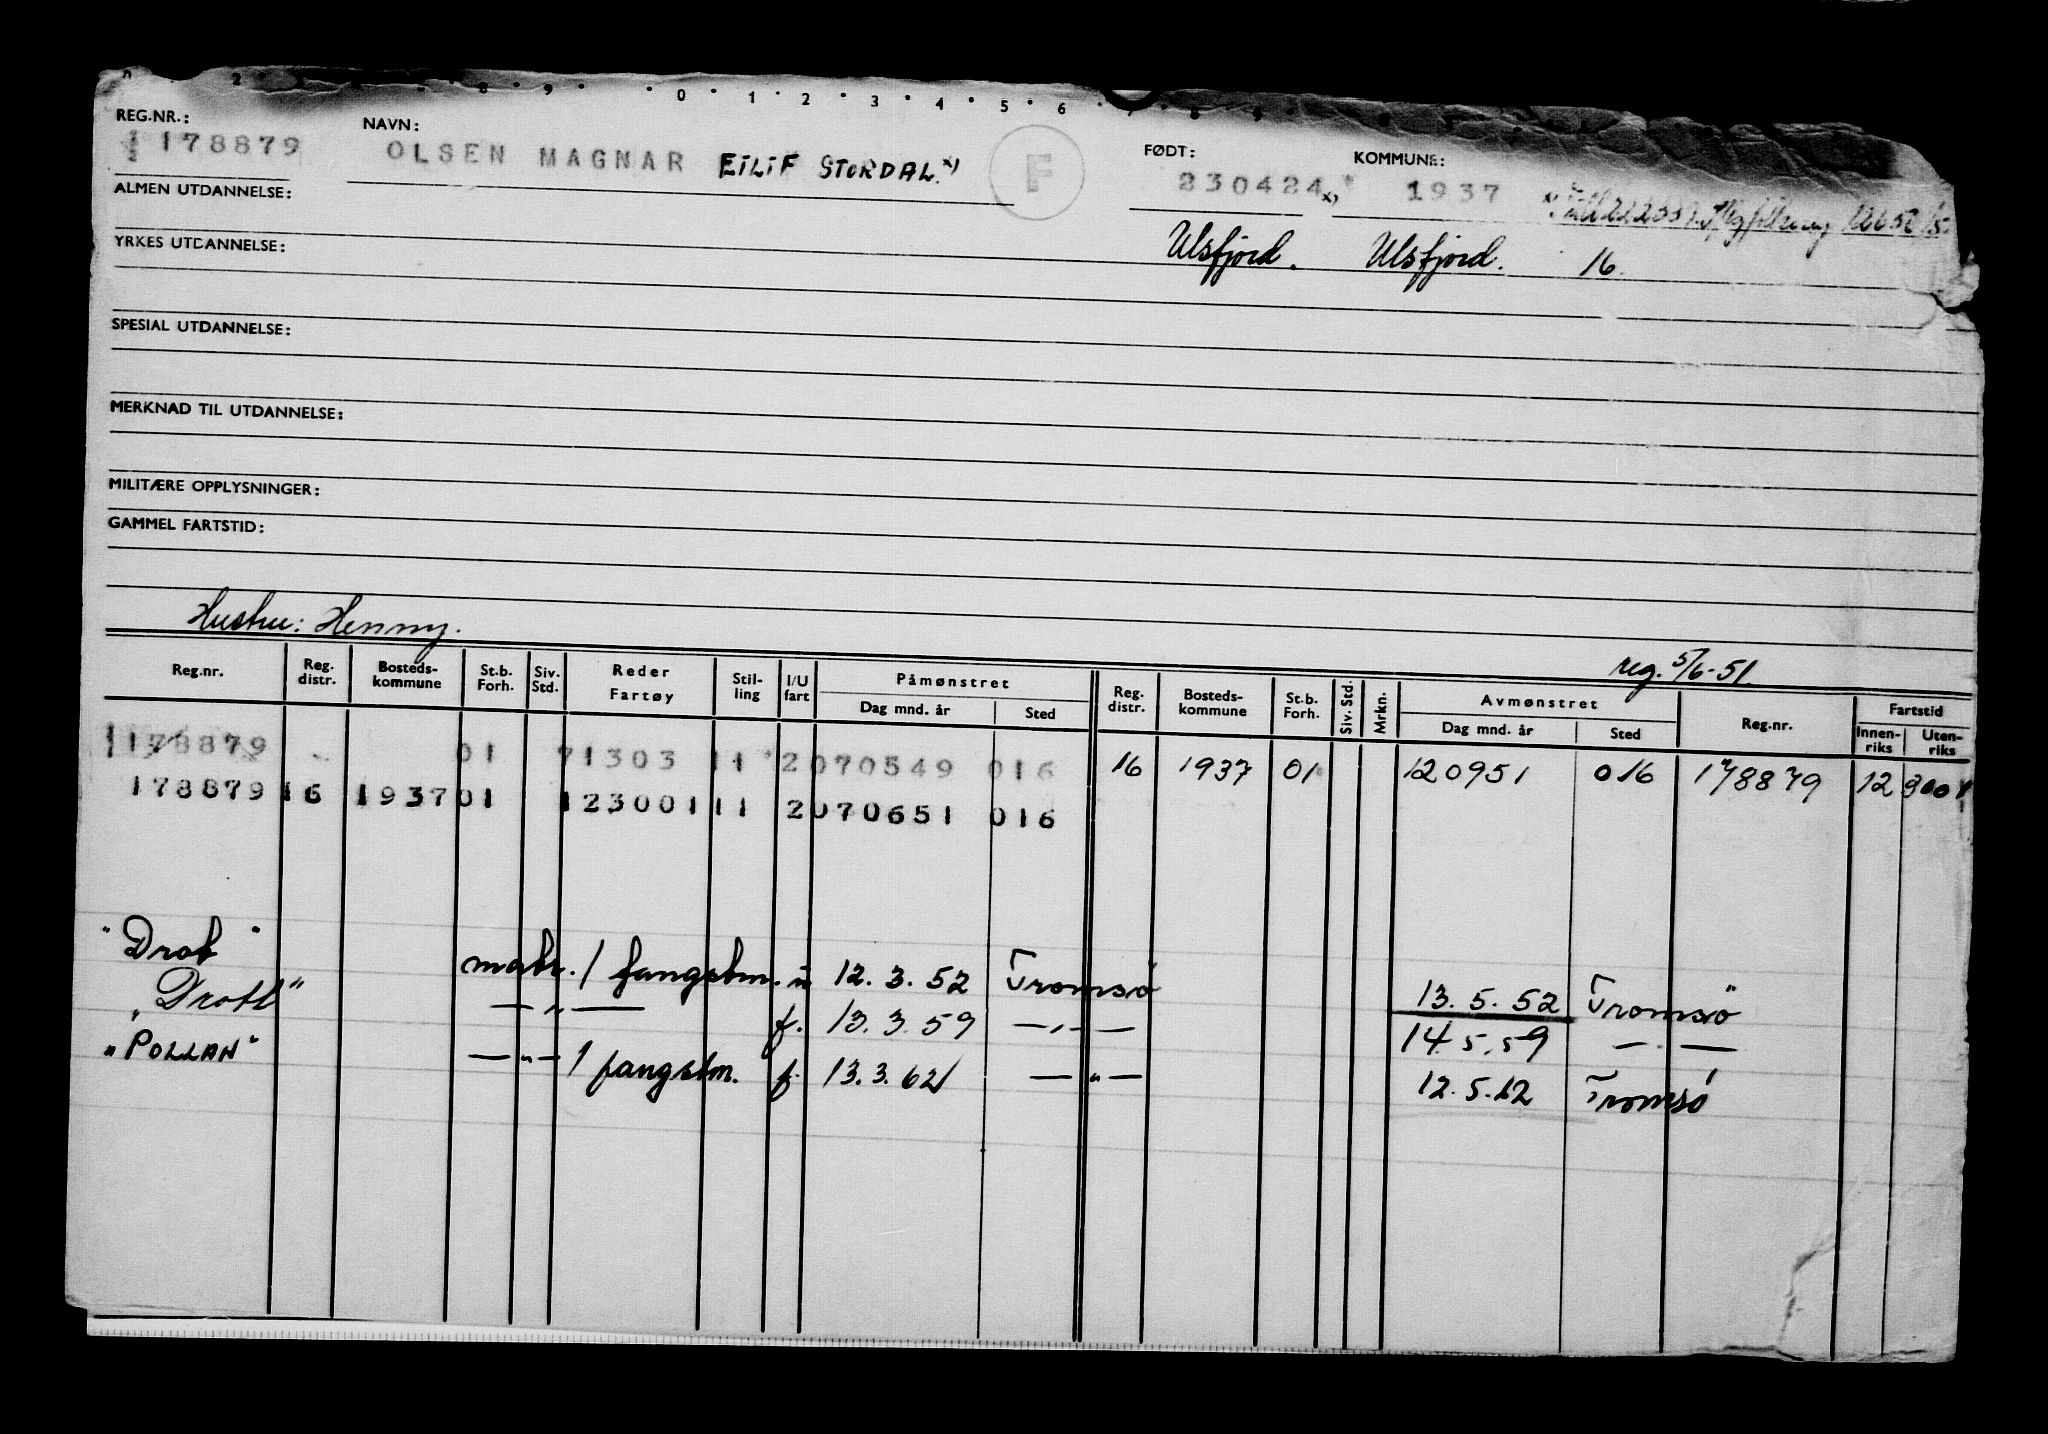 2 8 9 0 1 2 3 4 5 6 7 8 9
REG.NR.: NAVN: FØDT: KOMMUNE:
178879 OLSEN MAGNAR EILIF STORDAL x) F 230424 x) 1937
ALMEN UTDANNELSE:
Ulsfjord. Ulsfjord. 16
YRKES UTDANNELSE:
SPESIAL UTDANNELSE:
MERKNAD TIL UTDANNELSE:
MILITÆRE OPPLYSNINGER:
GAMMEL FARTSTID:
Hustru: Henny.
reg. 5/6-51
Reg.nr. Reg. distr. Bosteds-kommune St.b. Forh. Siv. Std. Reder Fartøy Stil-ling I/U fart Påmønstret Dag mnd. år Sted Reg. distr. Bosteds-kommune St.b. Forh. Siv. Std. Mrkn. Avmønstret Dag mnd. år Sted Reg.nr. Fartstid Innen-riks Uten-riks
178879 01 71303 11 2 070549 016 16 1937 01 120951 016 178879 12 3001
178879 16 1937 01 123001 11 2 070651 016
"Drot" matr. / fangstm. u 12.3.52 Tromsø 13.5.52 Tromsø
"Drott" — " — f. 13.3.59 — " — 14.5.59 — " —
"POLLAN" — " — / fangstm. f. 13.3.62 — " — 12.5.62 Tromsø